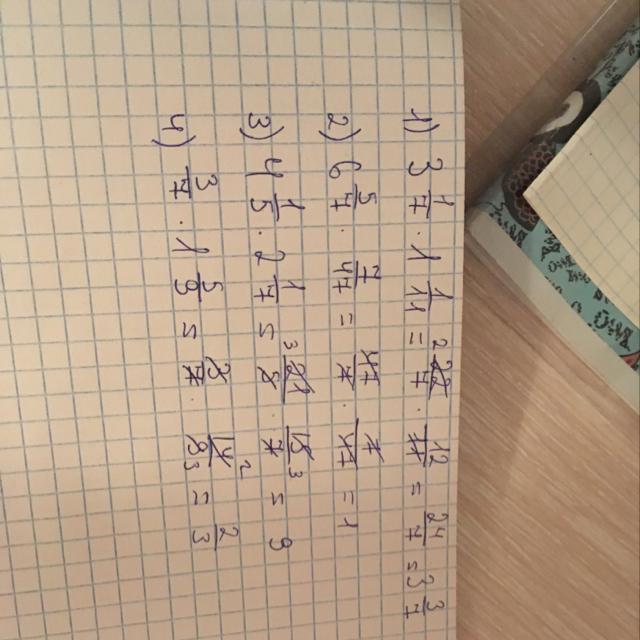 1) 3 1/7 · 1 1/11 = ²22/7 · 12/11 = 24/7 = 3 3/7
2) 6 5/7 · 7/47 = 47/7 · 7/47 = 1
3) 4 1/5 · 2 1/7 = ³21/5 · 15³/7 = 9
4) 3/7 · 1 5/9 = 3/7 · 14²/9₃ = 2/3